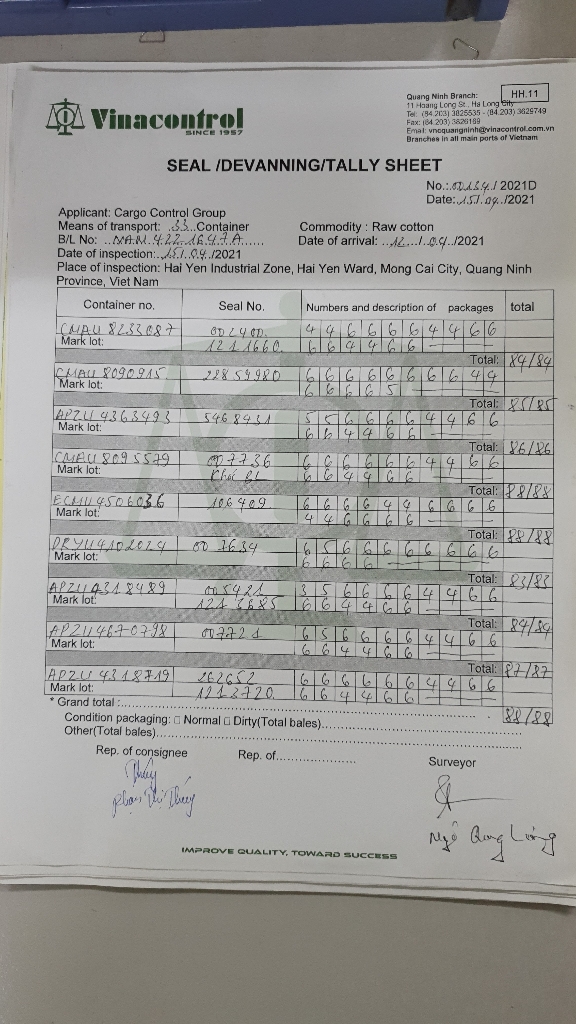 Vinacontrol
SINCE 1957
HH.11
Quang Ninh Branch:
11 Hoang Long St., Ha Long City
Tel: (84.203) 3825535 - (84.203) 3629749
Fax: (84.203) 3826169
Email: vncquangninh@vinacontrol.com.vn
Branches in all main ports of Vietnam
SEAL /DEVANNING/TALLY SHEET
No.: 00134 / 2021D
Date: 15/.04./2021
Applicant: Cargo Control Group
Means of transport: ..33..Container Commodity : Raw cotton
B/L No: ..NAM.422.1647A...... Date of arrival: ..12.../.04../2021
Date of inspection: ./15/.04./2021
Place of inspection: Hai Yen Industrial Zone, Hai Yen Ward, Mong Cai City, Quang Ninh
Province, Viet Nam
Container no. Seal No. Numbers and description of packages total
CMAU 8233087 002400 4 4 6 6 6 6 4 4 6 6
Mark lot: 1211660 6 6 4 4 6 6
Total: 84/84
CMAU 8090915 22859980 6 6 6 6 6 6 6 6 4 4
Mark lot: 6 6 6 6 5
Total: 85/85
APZU 4363493 5468431 5 5 6 6 6 6 4 4 6 6
Mark lot: 6 6 4 4 6 6
Total: 86/86
CMAU 8095579 007736 6 6 6 6 6 6 4 4 6 6
Mark lot: 6 6 4 4 6 6
Total: 88/88
ECMU 4506036 106409 6 6 6 6 4 4 6 6 6 6
Mark lot: 4 4 6 6 6 6
Total: 88/88
DRYU4102024 007634 6 5 6 6 6 6 6 6 6 6
Mark lot: 6 6 6 6
Total: 83/83
APZU 4318489 005421 3 5 6 6 6 6 4 4 6 6
Mark lot: 6 6 4 4 6 6
Total: 84/84
APZU 4670798 007721 6 5 6 6 6 6 4 4 6 6
Mark lot: 6 6 4 4 6 6
Total: 87/87
APZU 4318719 262652 6 6 6 6 6 6 4 4 6 6
Mark lot: 1213720 6 6 4 4 6 6
* Grand total :
88/88
Condition packaging: □ Normal □ Dirty(Total bales)
Other(Total bales)
Rep. of consignee Rep. of Surveyor
Thúy
Phạm Thị Thúy
Ngô Quang
IMPROVE QUALITY, TOWARD SUCCESS